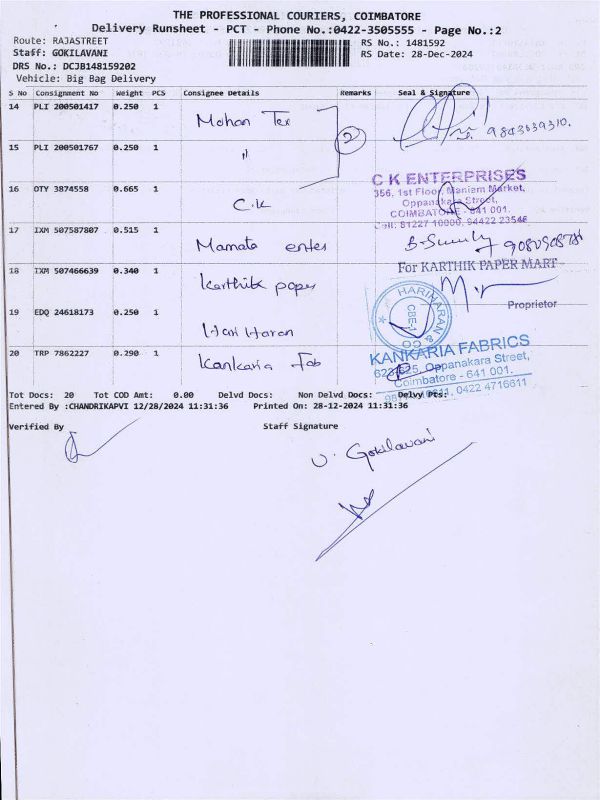 THE PROFESSIONAL COURIERS, COIMBATORE
Delivery Runsheet - PCT - Phone No.:0422-3505555 - Page No.:2
Route: RAJASTREET
RS No.: 1481592
Staff: GOKILAVANI
RS Date: 28-Dec-2024
DRS No.: DCJB148159202
Vehicle: Big Bag Delivery
S No Consignment No Weight PCS Consignee Details Remarks Seal & Signature
14 PLI 200501417 0.250 1 Mohan Tex
2
15 PLI 200501767 0.250 1 "
16 OTY 3874558 0.665 1 C.K
C K ENTERPRISES
356, 1st Floor, Maniam Market,
Oppanakara Street,
COIMBATORE - 641 001.
Cell: 81227 10000, 94422 23546
17 IXM 507587807 0.515 1 Mamata enter
18 IXM 507466639 0.340 1 Karthik paper
For KARTHIK PAPER MART
Proprietor
19 EDQ 24618173 0.250 1 Hari Haran
HARIHARAN & CO
CBE-1
20 TRP 7862227 0.290 1 Kankaria Fab
KANKARIA FABRICS
Oppanakara Street,
Coimbatore - 641 001.
0422 4716611
Tot Docs: 20 Tot COD Amt: 0.00 Delvd Docs: Non Delvd Docs: Delvy Pts:
Entered By :CHANDRIKAPVI 12/28/2024 11:31:36 Printed On: 28-12-2024 11:31:36
Verified By Staff Signature
V. Gokilavani